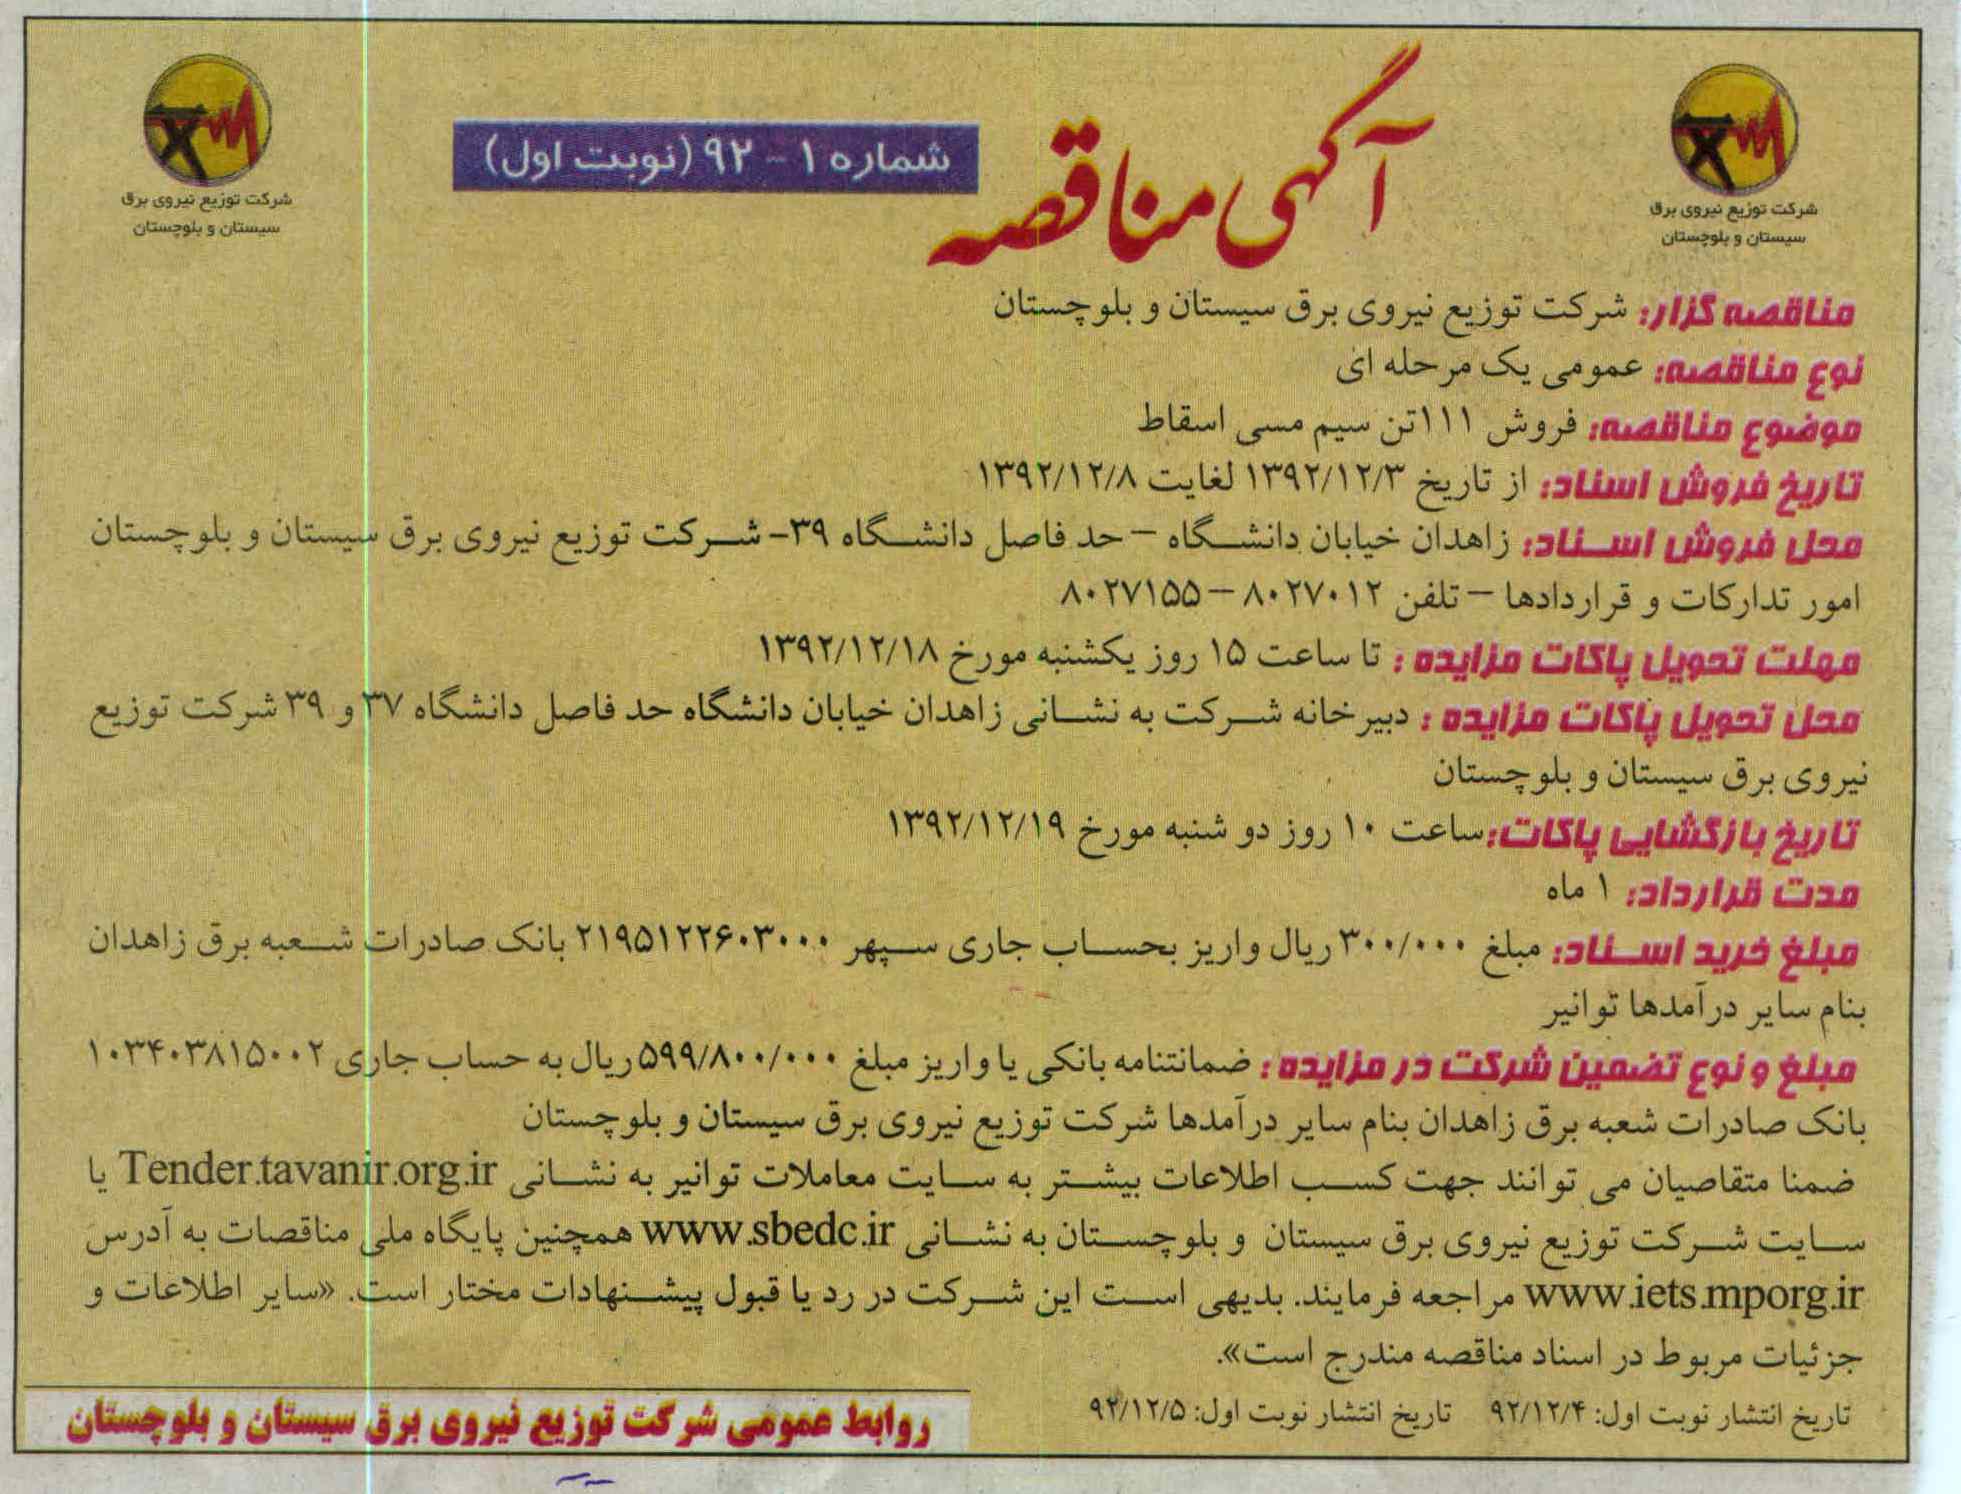 شرکت توزیع نیروی برق
سیستان و بلوچستان
آگهی مناقصه
شماره ۱ - ۹۲ (نوبت اول)
شرکت توزیع نیروی برق
سیستان و بلوچستان
مناقصه گزار: شرکت توزیع نیروی برق سیستان و بلوچستان
نوع مناقصه: عمومی یک مرحله ای
موضوع مناقصه: فروش ۱۱۱تن سیم مسی اسقاط
تاریخ فروش اسناد: از تاریخ ۱۳۹۲/۱۲/۳ لغایت ۱۳۹۲/۱۲/۸
محل فروش اسناد: زاهدان خیابان دانشگاه – حد فاصل دانشگاه ۳۹- شرکت توزیع نیروی برق سیستان و بلوچستان
امور تدارکات و قراردادها – تلفن ۸۰۲۷۰۱۲ – ۸۰۲۷۱۵۵
مهلت تحویل پاکات مزایده : تا ساعت ۱۵ روز یکشنبه مورخ ۱۳۹۲/۱۲/۱۸
محل تحویل پاکات مزایده : دبیرخانه شرکت به نشانی زاهدان خیابان دانشگاه حد فاصل دانشگاه ۳۷ و ۳۹ شرکت توزیع
نیروی برق سیستان و بلوچستان
تاریخ بازگشایی پاکات:ساعت ۱۰ روز دو شنبه مورخ ۱۳۹۲/۱۲/۱۹
مدت قرارداد: ۱ ماه
مبلغ خرید اسناد: مبلغ ۳۰۰/۰۰۰ ریال واریز بحساب جاری سپهر ۲۱۹۵۱۲۲۶۰۳۰۰۰ بانک صادرات شعبه برق زاهدان
بنام سایر درآمدها توانیر
مبلغ و نوع تضمین شرکت در مزایده : ضمانتنامه بانکی یا واریز مبلغ ۵۹۹/۸۰۰/۰۰۰ ریال به حساب جاری ۱۰۳۴۰۳۸۱۵۰۰۲
بانک صادرات شعبه برق زاهدان بنام سایر درآمدها شرکت توزیع نیروی برق سیستان و بلوچستان
ضمنا متقاصیان می توانند جهت کسب اطلاعات بیشتر به سایت معاملات توانیر به نشانی Tender.tavanir.org.ir یا
سایت شرکت توزیع نیروی برق سیستان و بلوچستان به نشانی www.sbedc.ir همچنین پایگاه ملی مناقصات به آدرس
www.iets.mporg.ir مراجعه فرمایند. بدیهی است این شرکت در رد یا قبول پیشنهادات مختار است. «سایر اطلاعات و
جزئیات مربوط در اسناد مناقصه مندرج است».
تاریخ انتشار نوبت اول: ۹۲/۱۲/۴ تاریخ انتشار نوبت اول: ۹۲/۱۲/۵
روابط عمومی شرکت توزیع نیروی برق سیستان و بلوچستان